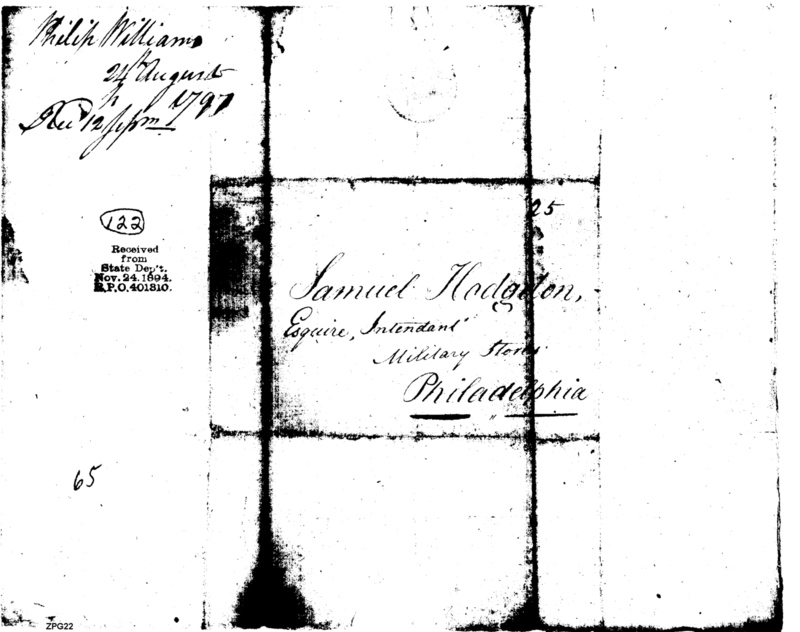 Philip Williams
24th August
1797
Rec'd 12 Septm
122
Received
from
State Dep't.
Nov. 24. 1894.
R.P.O. 401310.
25
Samuel Hodgdon,
Esquire, Intendant
Military Stores
Philadelphia
65
ZPG22